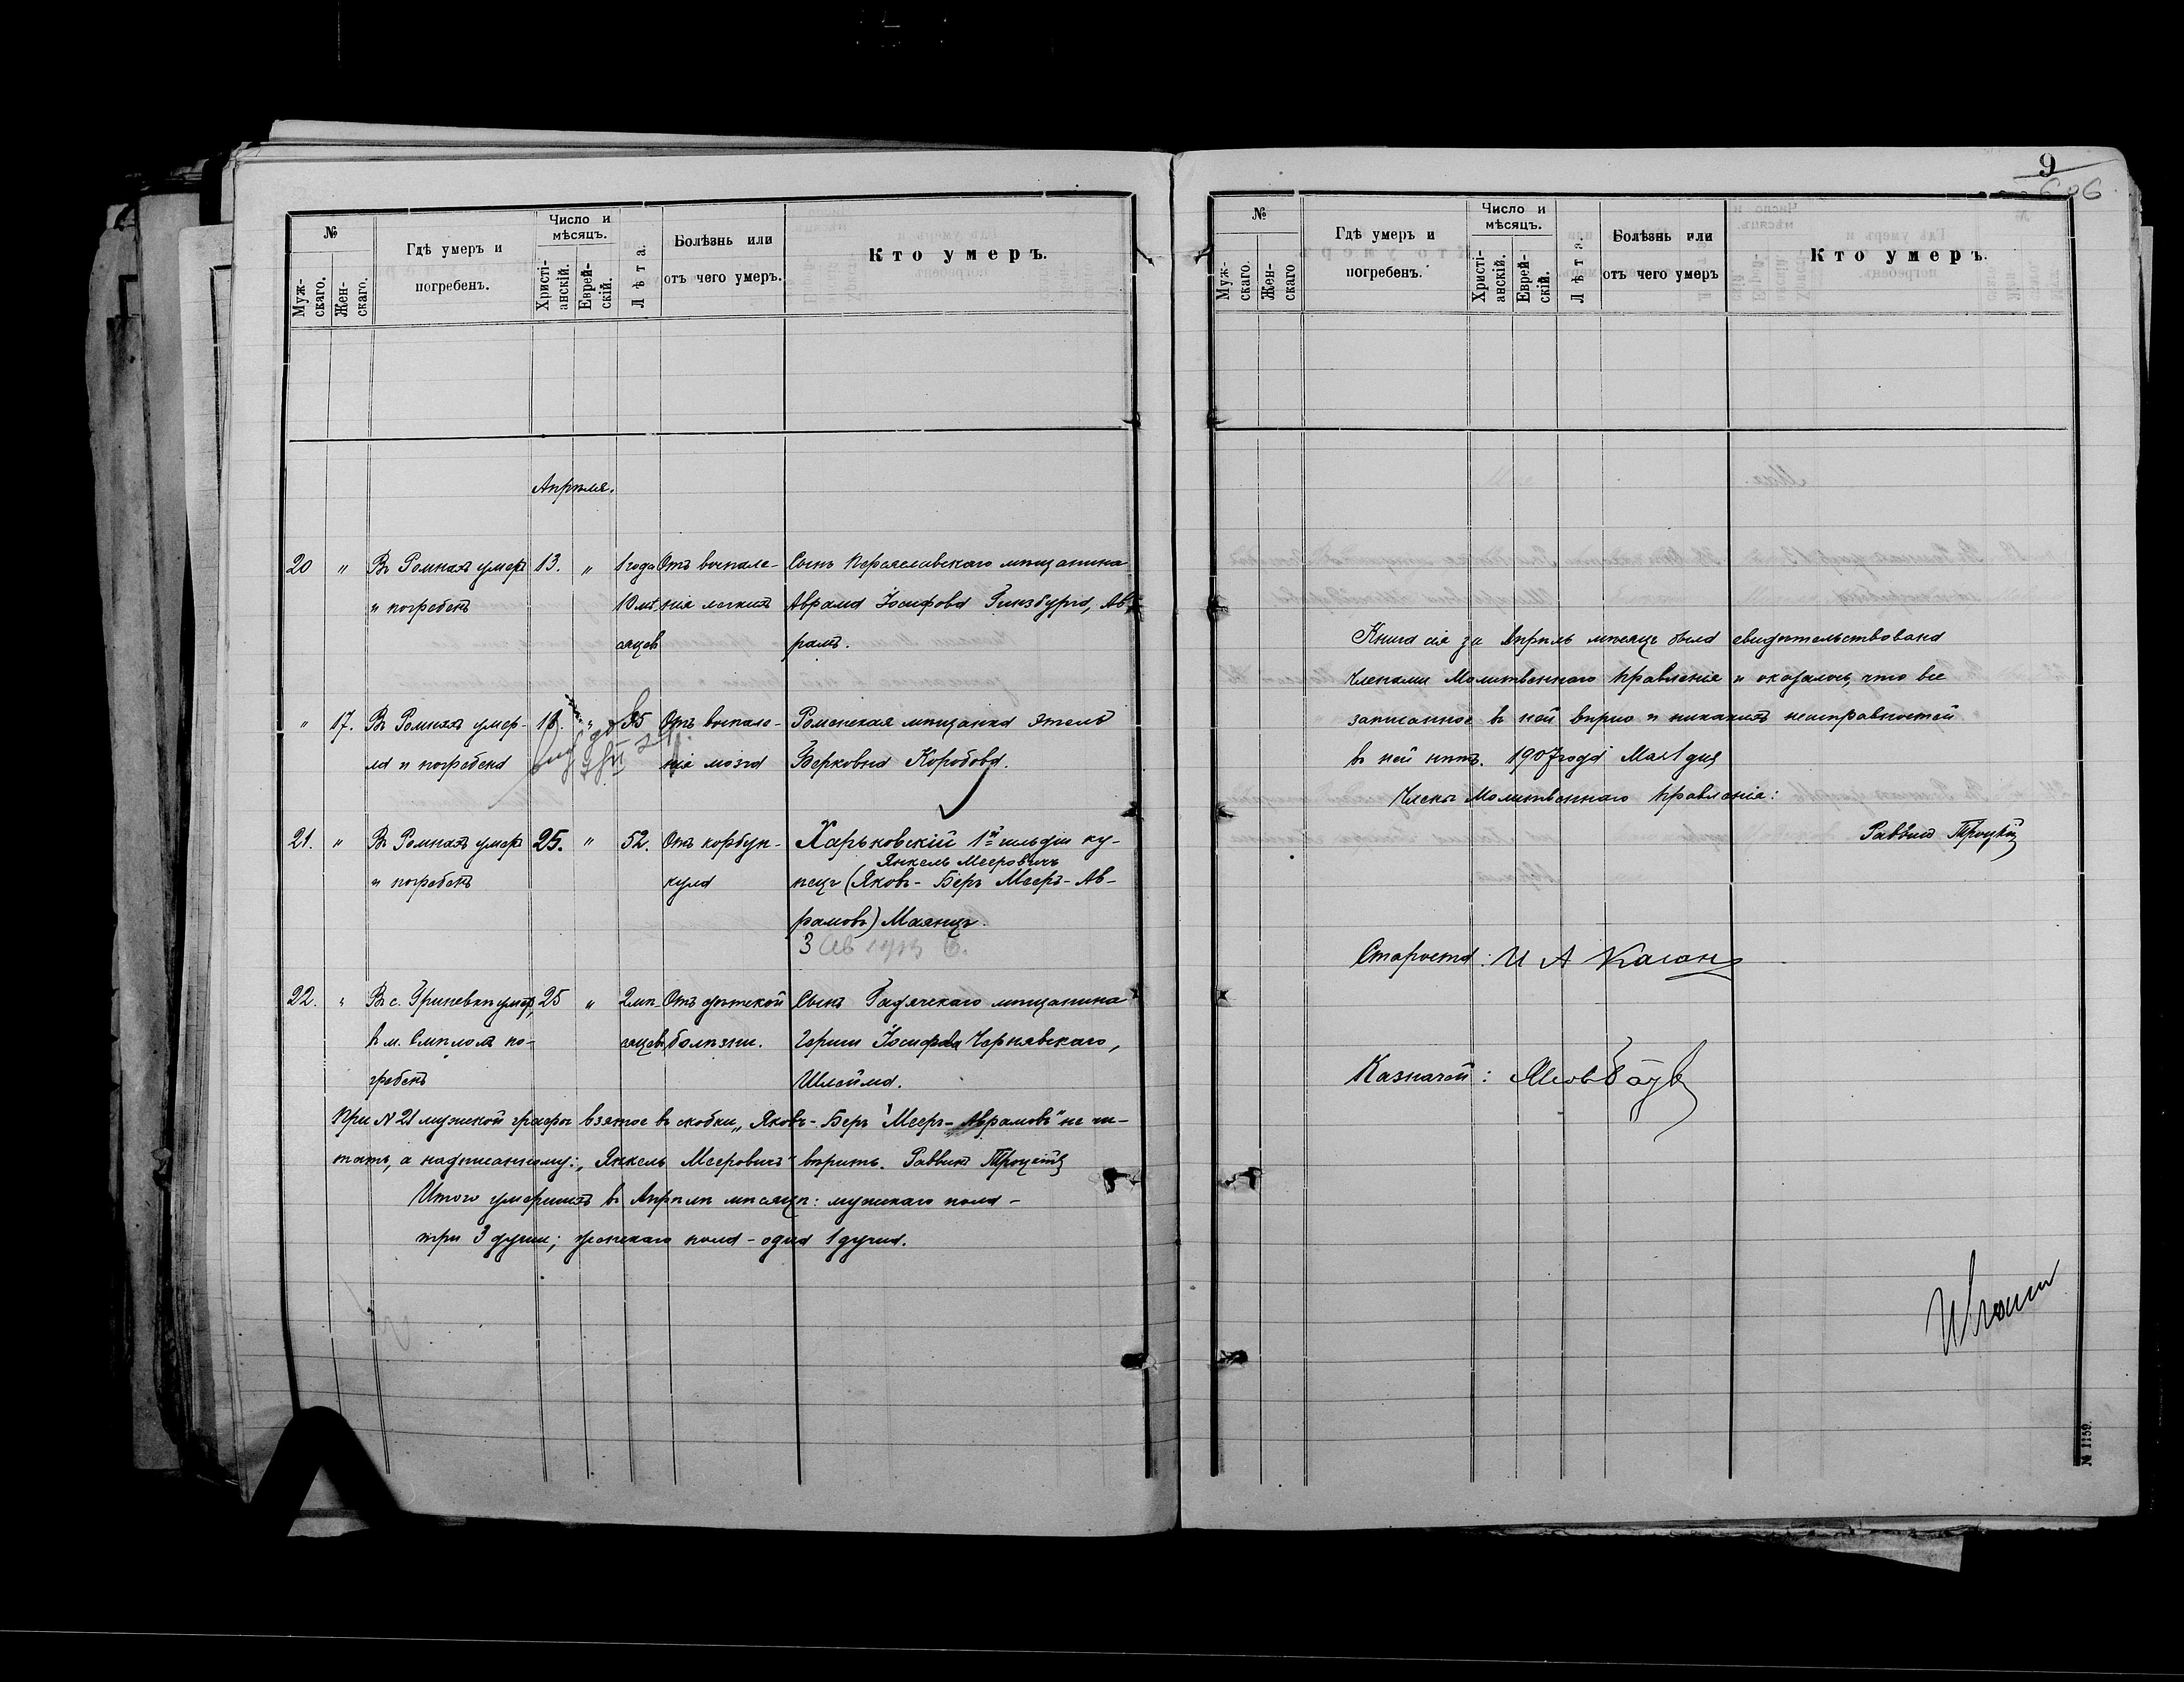 №
Муж-
скаго.
Жен-
скаго.
Гдѣ умеръ и
погребенъ.
Число и
мѣсяцъ.
Христі-
анскій.
Еврей-
скій.
Лѣта.
Болѣзнь или
отъ чего умеръ.
Кто умеръ.
Апрѣля.
20 " Въ Ромнахъ умеръ 13. " 1 года Отъ воспале- Сынъ Переяславскаго мѣщанина
и погребенъ 10 мѣ- нія легкихъ Аврама Іосифова Гинзбурга, Ав-
сяцев рамъ.
" 17. Въ Ромнахъ умер- 18. " 35 Отъ воспале- Роменская мѣщанка Этель
ла и погребена нія мозга Берковна Коробова.
21. " Въ Ромнахъ умеръ 25. " 52. Отъ корбун- Харьковскій 1й гильдіи ку-
Янкель Мееровичъ
и погребенъ кула пецъ (Яковъ-Беръ Мееръ-Ав-
рамовъ) Маянцъ.
22. " Въ с. Гриневкѣ умеръ, 25 " 2 мѣ- Отъ дѣтской Сынъ Гадячскаго мѣщанина
в м. Смѣлом по- сяцев болѣзни. Герши Іосифова Чернявскаго,
гребенъ Шлейма.
При N 21 мужской графы взятое въ скобки „Яковъ-Беръ Мееръ-Аврамовъ" не чи-
тать, а надписанному: „Янкель Мееровичъ" вѣрить. Раввинъ Троцкій
Итого умершихъ въ Апрѣлѣ мѣсяцѣ: мужскаго пола -
три 3 души; женскаго пола - одна 1 душа.
9
606
№
Муж-
скаго.
Жен-
скаго
Гдѣ умеръ и
погребенъ.
Число и
мѣсяцъ.
Христі-
анскій.
Еврей-
скій.
Лѣта.
Болѣзнь или
отъ чего умеръ
Кто умеръ.
Книга сія за Апрѣль мѣсяцъ была свидѣтельствована
Членами Молитвеннаго Правленія и оказалось, что все
записанное въ ней вѣрно и никакихъ неисправностей
въ ней нѣтъ. 1907 года Мая 1 дня
Члены Молитвеннаго Правленія:
Раввинъ Троцкій
Староста: И А Каган
Казначей:
№ 1159.